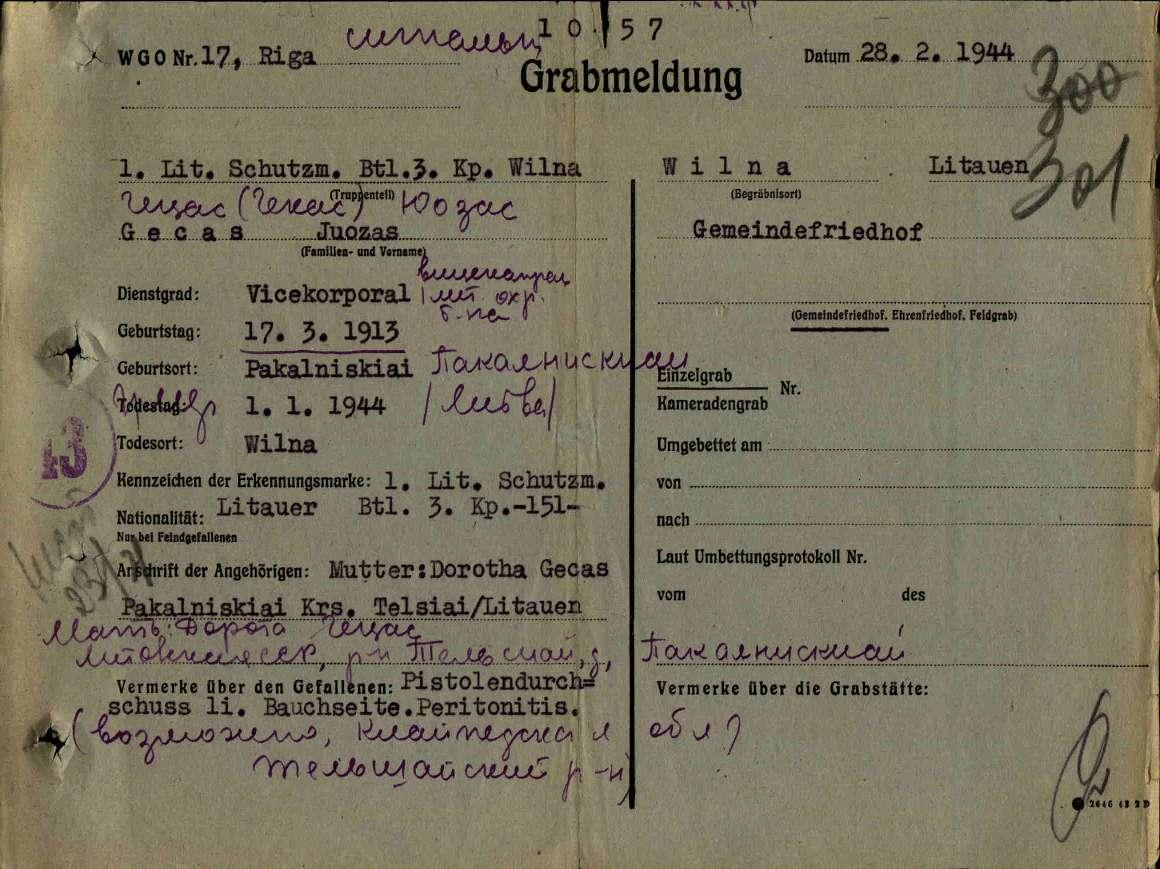 10 57
WGO Nr. 17, Riga
Datum 28. 2. 1944
Grabmeldung
300
301
1. Lit. Schutzm. Btl.3. Kp. Wilna
(Truppenteil)
Гецас (Гекас) Юозас
Gecas Juozas
(Familien- und Vorname)
Dienstgrad: Vicekorporal
лит. охр.
б-на
Geburtstag: 17. 3. 1913
Geburtsort: Pakalniskiai Пакалнискиаи
Todestag: 1. 1. 1944 /Литва/
Todesort: Wilna
43
Kennzeichen der Erkennungsmarke: 1. Lit. Schutzm.
Nationalität: Litauer Btl. 3. Kp.-151-
Nur bei Feindgefallenen
Anschrift der Angehörigen: Mutter:Dorotha Gecas
Pakalniskiai Krs. Telsiai/Litauen
Мать: Дорота Гецас
р-н Тельсиай, д, Пакалнискиай
Vermerke über den Gefallenen: Pistolendurch=
schuss li. Bauchseite.Peritonitis.
(возможно, Клайпедская обл)
тельшайский р-н)
Wilna Litauen
(Begräbnisort)
Gemeindefriedhof
(Gemeindefriedhof, Ehrenfriedhof, Feldgrab)
Einzelgrab
Nr.
Kameradengrab
Umgebettet am
von
nach
Laut Umbettungsprotokoll Nr.
vom des
Vermerke über die Grabstätte:
2646 43 2 D